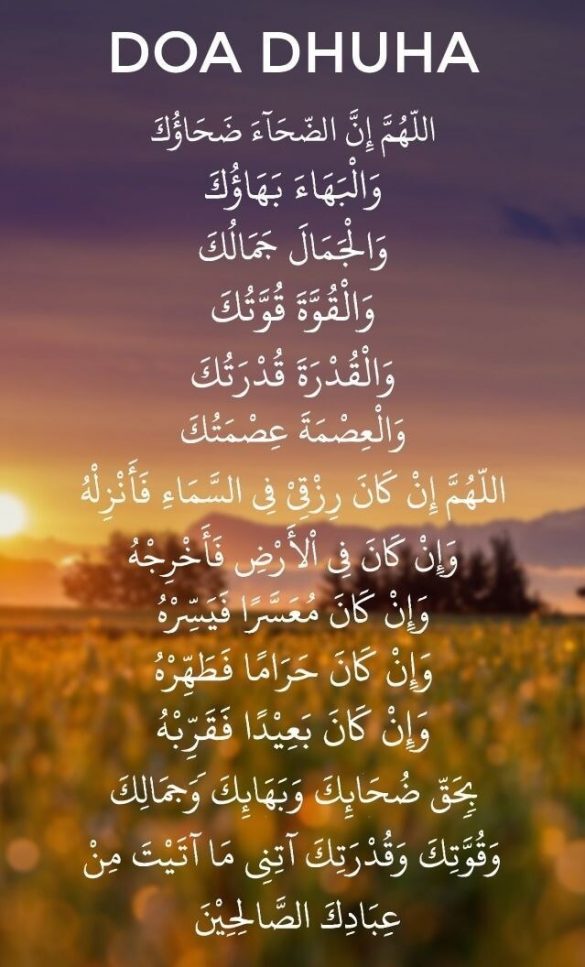 DOA DHUHA
اللّٰهُمَّ إِنَّ الضّحَآءَ ضَحَاؤُكَ
وَالْبَهَاءَ بَهَاؤُكَ
وَالْجَمَالَ جَمَالُكَ
وَالْقُوَّةَ قُوَّتُكَ
وَالْقُدْرَةَ قُدْرَتُكَ
وَالْعِصْمَةَ عِصْمَتُكَ
اللّٰهُمَّ إِنْ كَانَ رِزْقِيْ فِى السَّمَاءِ فَأَنْزِلْهُ
وَإِنْ كَانَ فِى اْلأَرْضِ فَأَخْرِجْهُ
وَإِنْ كَانَ مُعَسَّرًا فَيَسِّرْهُ
وَإِنْ كَانَ حَرَامًا فَطَهِّرْهُ
وَإِنْ كَانَ بَعِيْدًا فَقَرِّبْهُ
بِحَقّ ضُحَائِكَ وَبَهَائِكَ وَجَمَالِكَ
وَقُوَّتِكَ وَقُدْرَتِكَ آتِنِى مَا آتَيْتَ مِنْ
عِبَادِكَ الصَّالِحِيْنَ